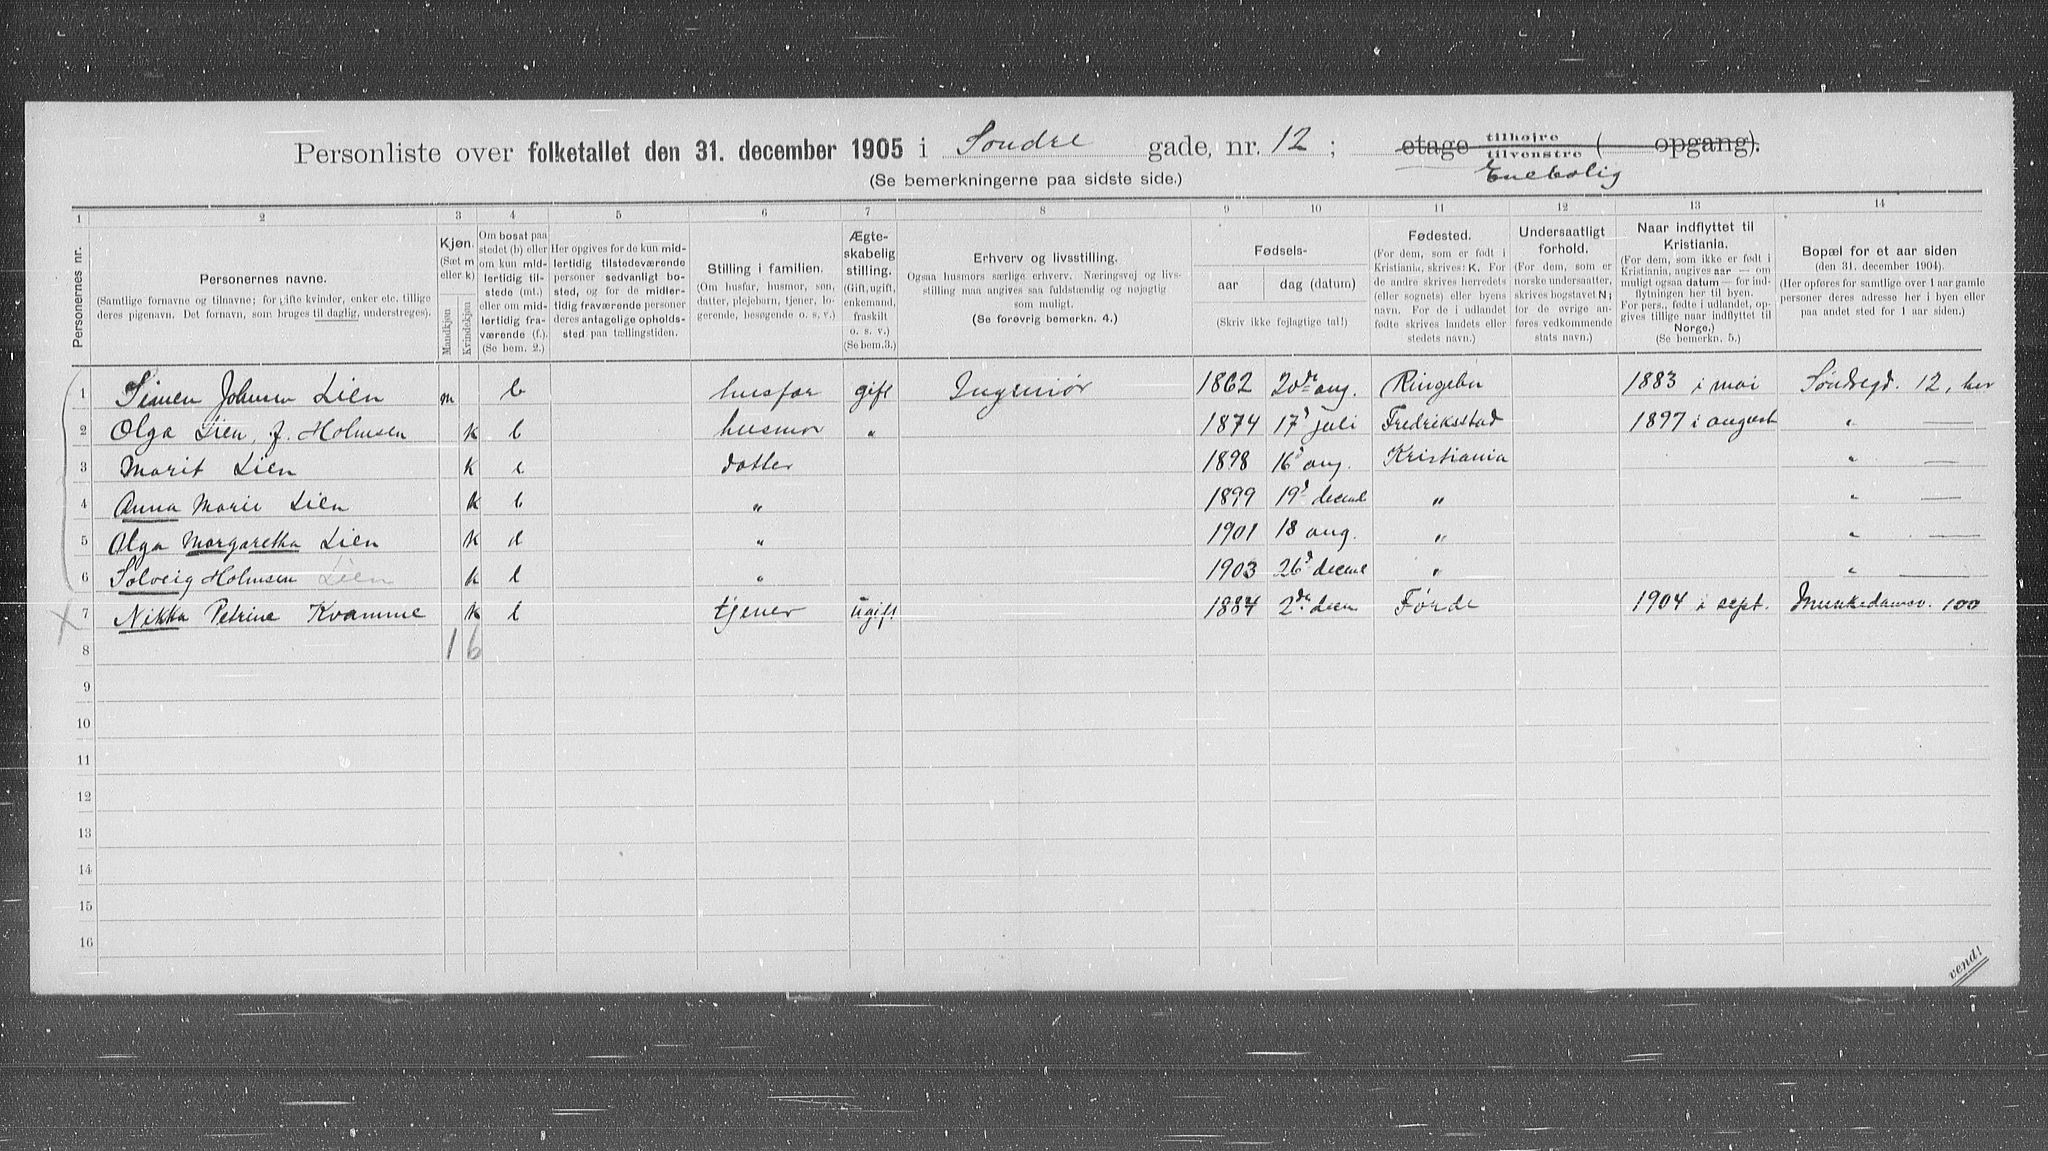 Personliste over folketallet den 31. december 1905 i Sondre gade, nr. 12 ; etage tilhøire tilvenstre ( opgang).
Enebolig
(Se bemerkningerne paa sidste side.)
1 2 3 4 5 6 7 8 9 10 11 12 13 14
Personernes nr.
Personernes navne.
(Samtlige fornavne og tilnavne; for gifte kvinder, enker etc. tillige deres pigenavn. Det fornavn, som bruges til daglig, understreges).
Kjøn.
(Sæt m eller k)
Mandkjøn
Kvindekjøn
Om bosat paa stedet (b) eller om kun midlertidig tilstede (mt.) eller om midlertidig fraværende (f.).
(Se bem. 2.)
Her opgives for de kun midlertidig tilstedeværende personer sedvanligt bosted, og for de midlertidig fraværende personer deres antagelige opholdssted paa tællingstiden.
Stilling i familien.
(Om husfar, husmor, søn, datter, plejebarn, tjener, logerende, besøgende o. s. v.)
Ægteskabelig stilling.
(Gift, ugift, enkemand, fraskilt o. s. v.)
(Se bem.3.)
Erhverv og livsstilling.
Ogsaa husmors særlige erhverv. Næringsvej og livsstilling maa angives saa fuldstændig og nøjagtig som muligt.
(Se forøvrig bemerkn. 4.)
Fødsels-
aar dag (datum)
(Skriv ikke fejlagtige tal!)
Fødested.
(For dem, som er født i Kristiania, skrives: K. For de andre skrives herredets (eller sognets) eller byens navn. For de i udlandet fødte skrives landets eller stedets navn.)
Undersaatligt forhold.
(For dem, som er norske undersaatter, skrives bogstavet N; for de øvrige anføres vedkommende stats navn.)
Naar indflyttet til Kristiania.
(For dem, som ikke er født i Kristiania, angives aar — om muligt ogsaa datum — for indflytningen her til byen. For pers., fødte i udlandet, opgives tillige naar indflyttet til Norge.)
(Se bemerkn. 5.)
Bopæl for et aar siden
(den 31. december 1904).
(Her opføres for samtlige over 1 aar gamle personer deres adresse her i byen eller paa andet sted for 1 aar siden.)
1 Simen Johnsen Lien m b husfar gift Ingeniør 1862 20de aug. Ringebu 1883 i mai Søndregd. 12, her
2 Olga Lien, f. Holmsen K b husmor " 1874 17d juli Fredriksstad 1897 i august " —
3 Marit Lien K b datter 1898 16d aug. Kristiania " —
4 Anna Marie Lien K b " 1899 19d decemb " " —
5 Olga Margaretha Lien K b " 1901 18 aug. " " —
6 Solveig Holmsen Lien k b " 1903 26d decemb " " —
7 Nikka Petrine Kvamme K b tjener ugift 1884 2den Førde 1904 i sept. Munkedamsv. 100
8 1 6
9
10
11
12
13
14
15
16
vend!